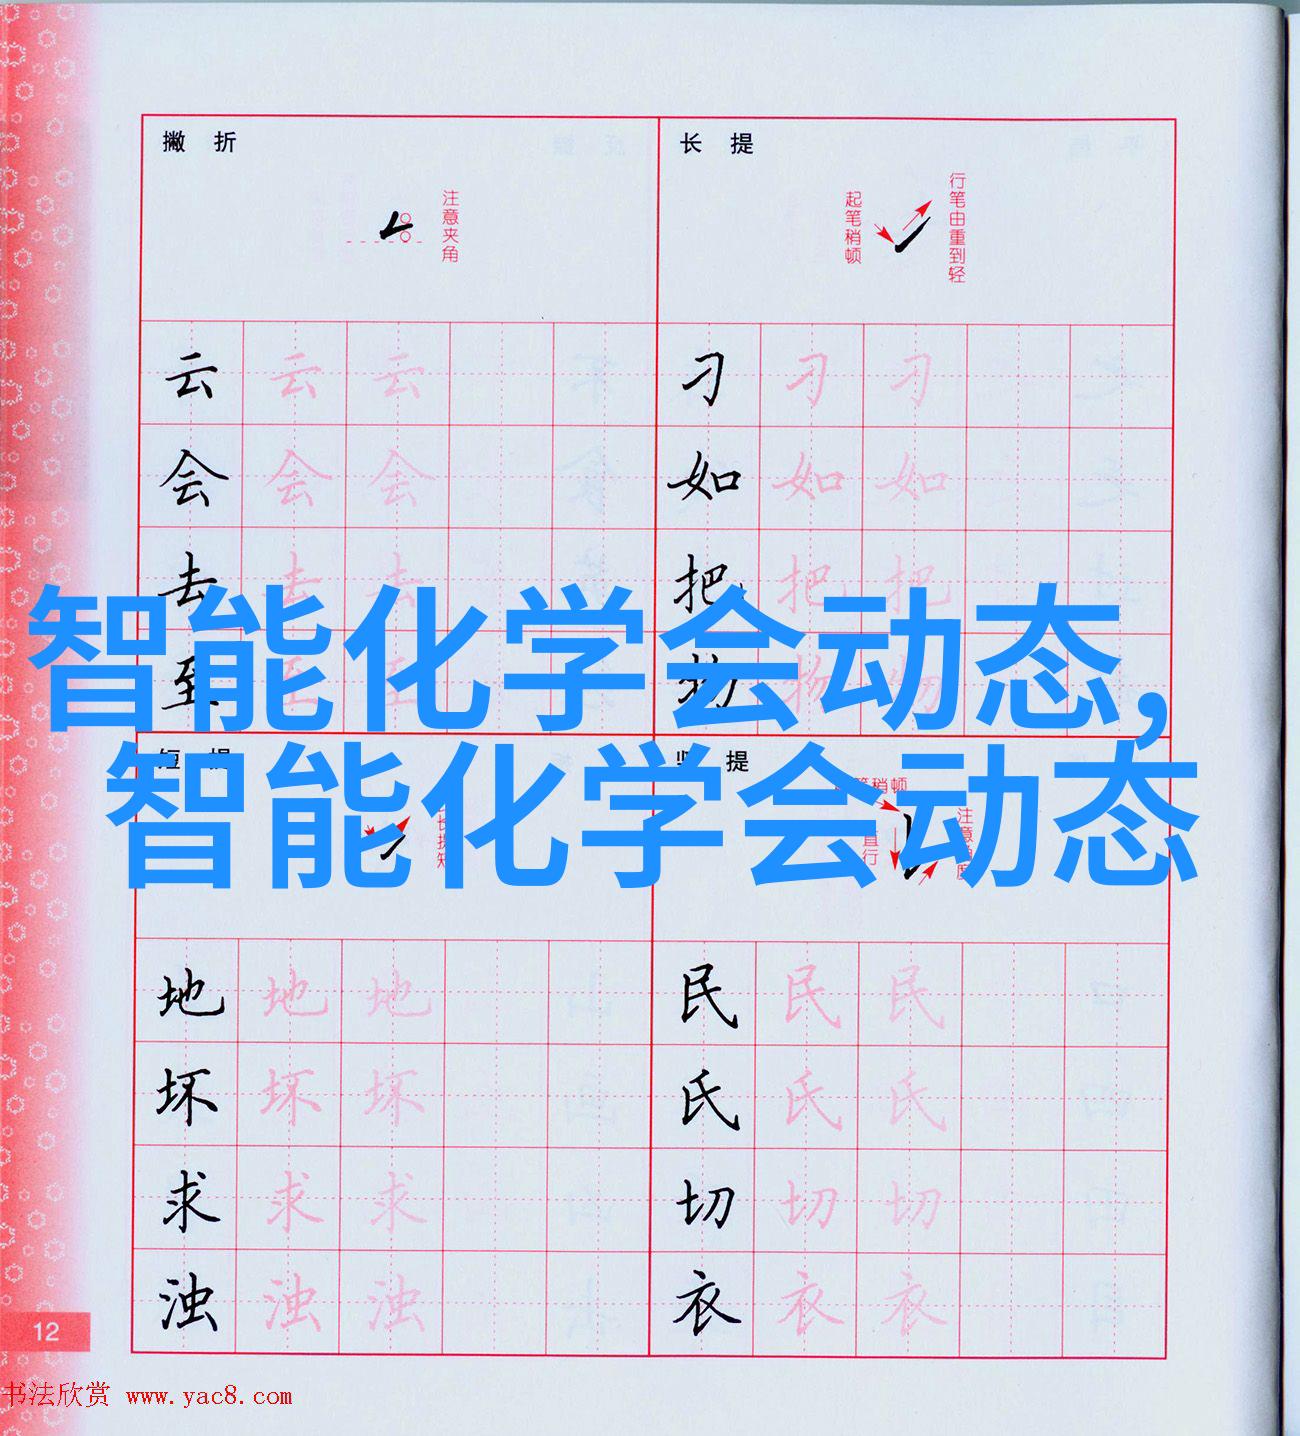 撇 折
注意夹角
长 提
起笔稍顿
行笔由重到轻
云 云 云
刁 刁 刁
会 会 会
如 如 如
去 去 去
把 把 把
智能化学会动态,
至 至 至
物 物 物
智能化学会动态
短 提
竖 提
笔稍顿
直行
地 地 地
民 民 民
坏 坏 坏
氏 氏 氏
求 求 求
切 切 切
浊 浊 浊
衣 衣 衣
12
书法欣赏 www.yac8.com